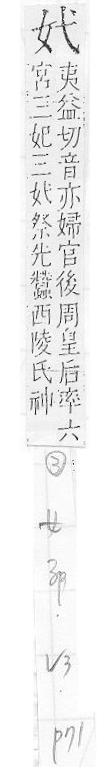 妷
夷益切音亦婦官後周皇后率六
宮三妃三妷祭先蠶西陵氏神
③
女部.
V3.
P71